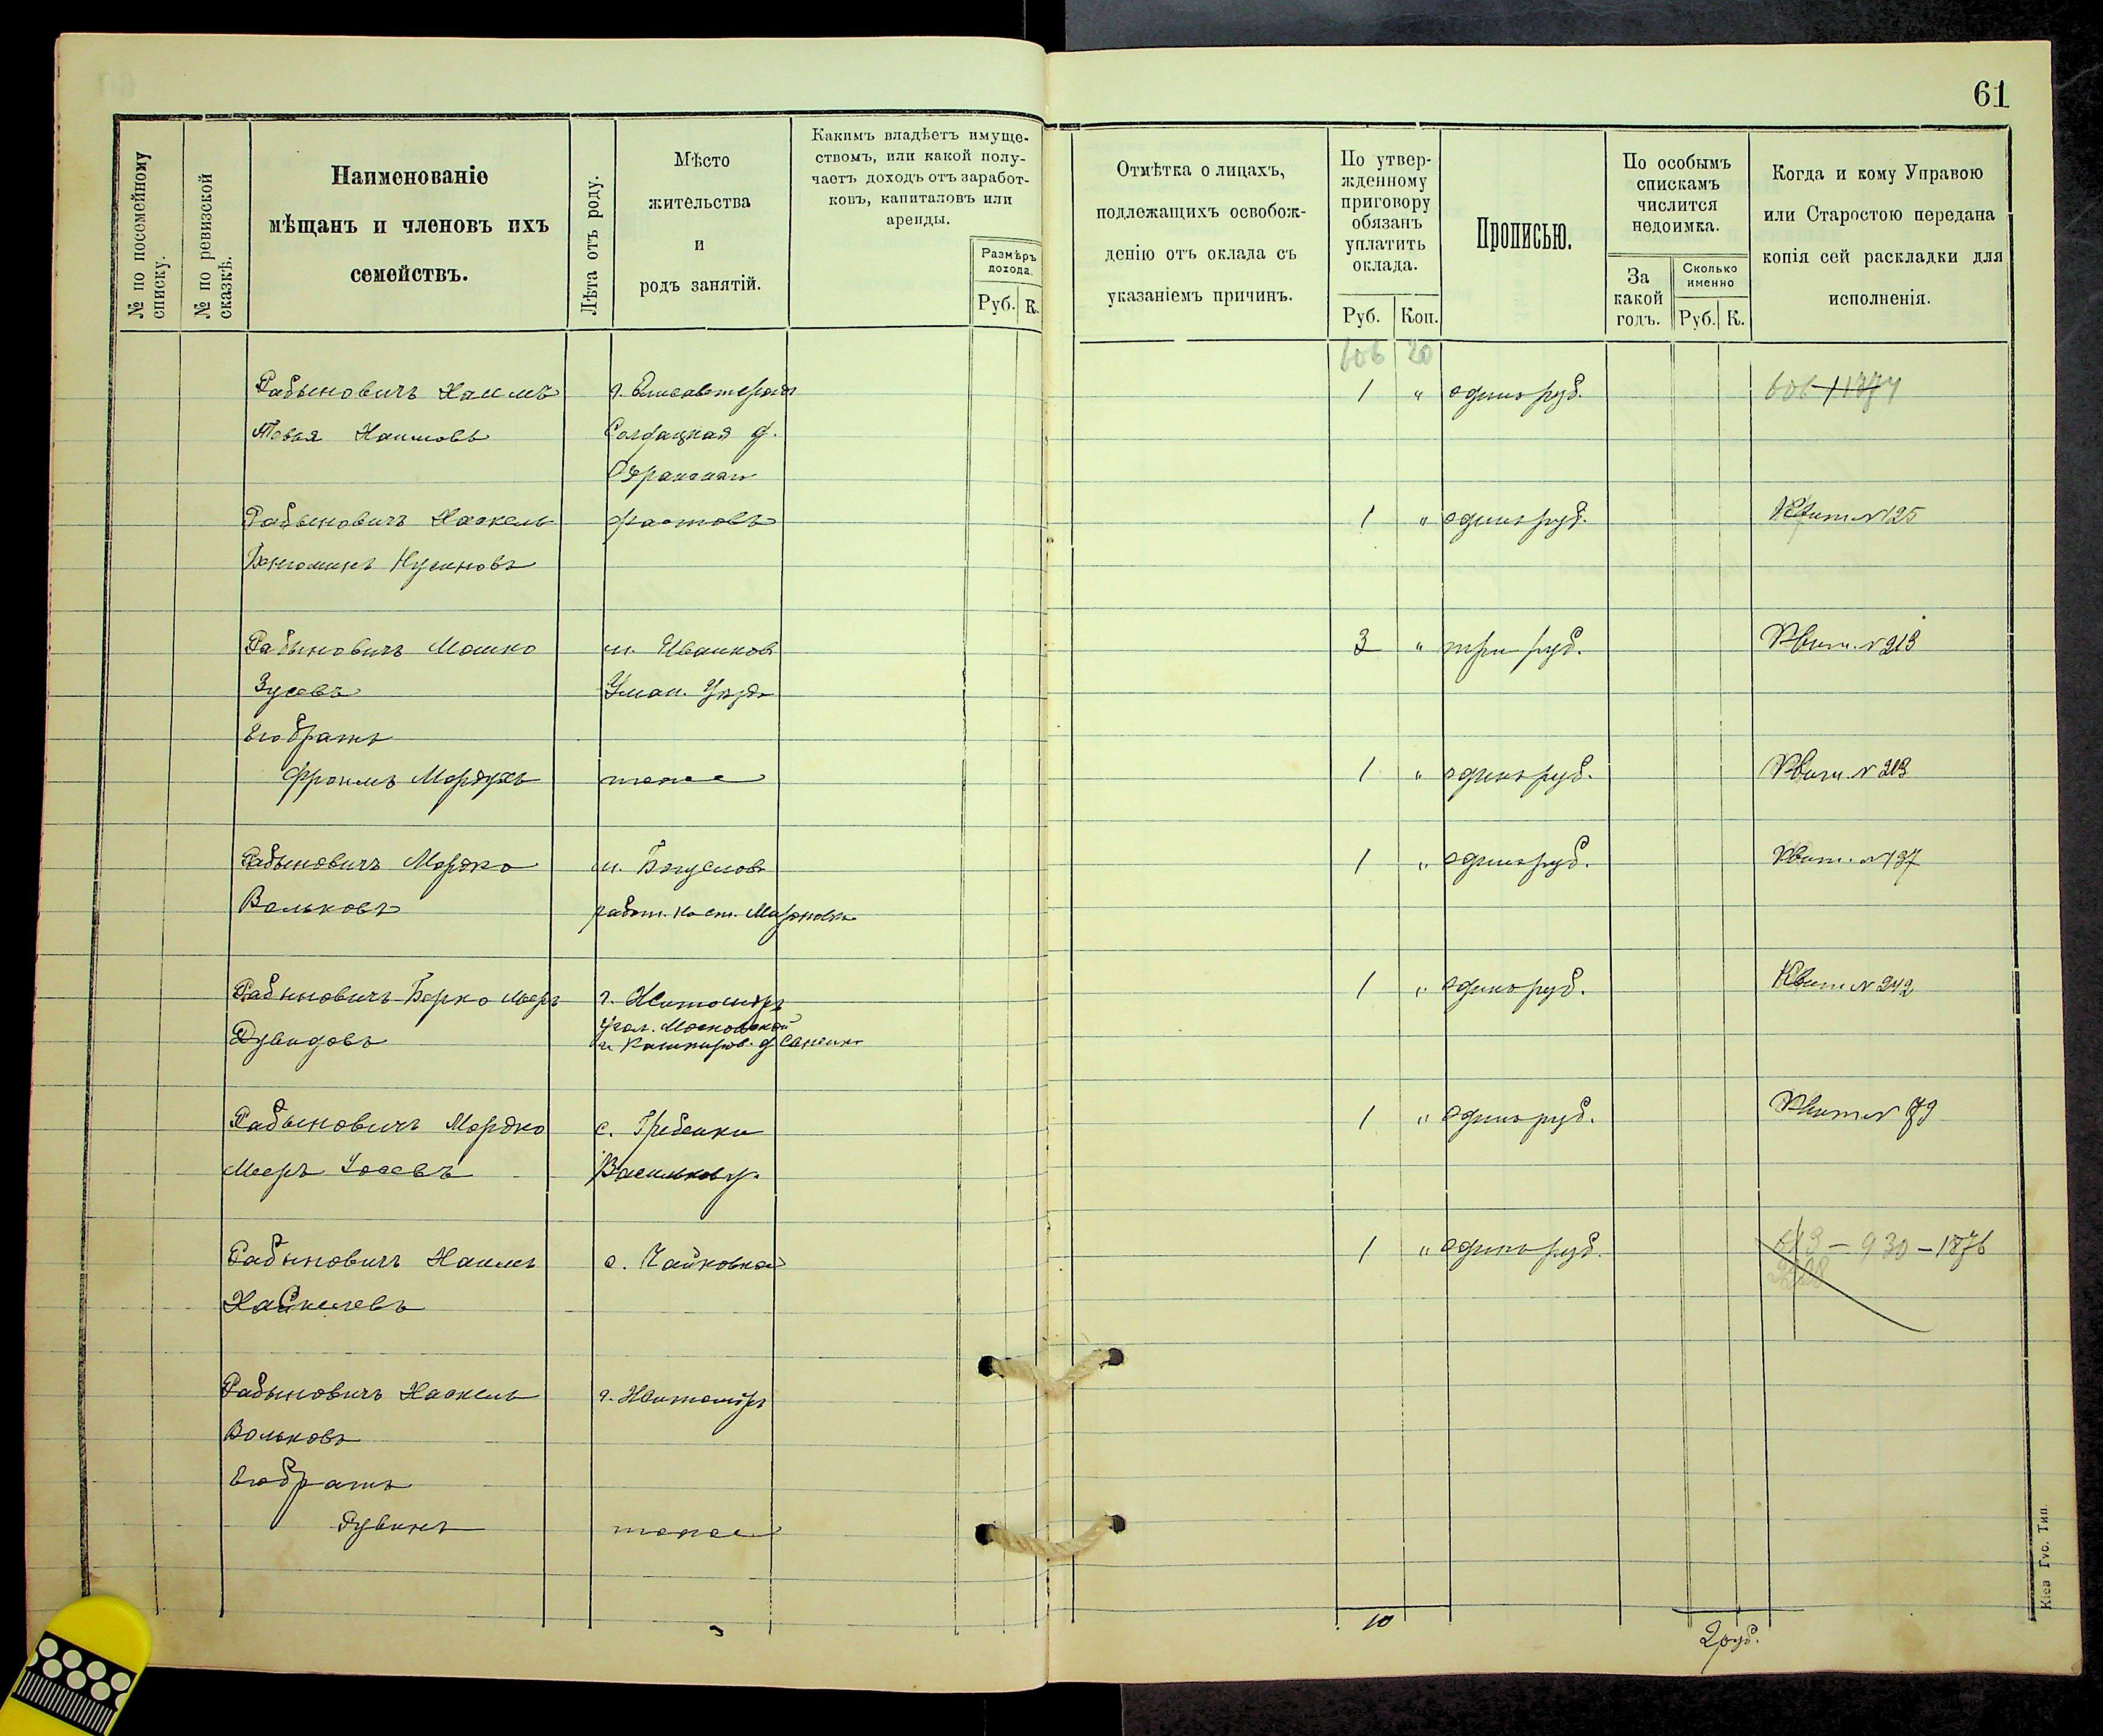 61
№ по посемейному списку.
№ по ревизской сказкѣ.
Наименованіе
мѣщанъ и членовъ ихъ
семействъ.
Лѣта отъ роду.
Мѣсто
жительства
и
родъ занятій.
Какимъ владѣетъ имуще-
ствомъ, или какой полу-
чаетъ доходъ отъ заработ-
ковъ, капиталовъ или
аренды.
Размѣръ
дохода.
Руб. К.
Отмѣтка о лицахъ,
подлежащихъ освобож-
денію отъ оклада съ
указаніемъ причинъ.
По утвер-
жденному
приговору
обязанъ
уплатить
оклада.
Руб. Коп.
Прописью.
По особымъ
спискамъ
числится
недоимка.
За
какой
годъ.
Сколько
именно
Руб. К.
Когда и кому Управою
или Старостою передана
копія сей раскладки для
исполненія.
606 20
Рабиновичъ Хаимъ г. Елисаветградъ 1 " одинъ руб.
Товія Хаимовъ Солдацкая д.
Рабиновичъ Хаскель Фастовъ 1 " одинъ руб. Квит. № 125
Бенюминъ Нусиновъ
Рабиновичъ Мошко м. Иванковъ 3 " три руб. Квит. № 213
Зусевъ Уман. Уѣзда
Его братъ
Фроимъ Мордухъ тоже 1 " одинъ руб. Квит. № 213
Рабиновичъ Мордко м. Богуславъ 1 " одинъ руб. Квит. № 137
Вольковъ работ. на ст. Мироновка
Рабиновичъ Берко Мееръ г. Житомиръ 1 " одинъ руб. Квит. № 242
Дувидовъ Угол. Московской
Рабиновичъ Мордко с. Гребенки 1 " одинъ руб. Квит. № 79
Мееръ Іосевъ Васильков у.
Рабиновичъ Хаимъ с. Чайковка 1 " одинъ руб. 613 - 930 - 1876
Хаскелевъ
Рабиновичъ Хаскель г. Житомиръ
Вольковъ
Его братъ
Рувинъ тоже
10
2 руб.
Кіев Губ. Тип.